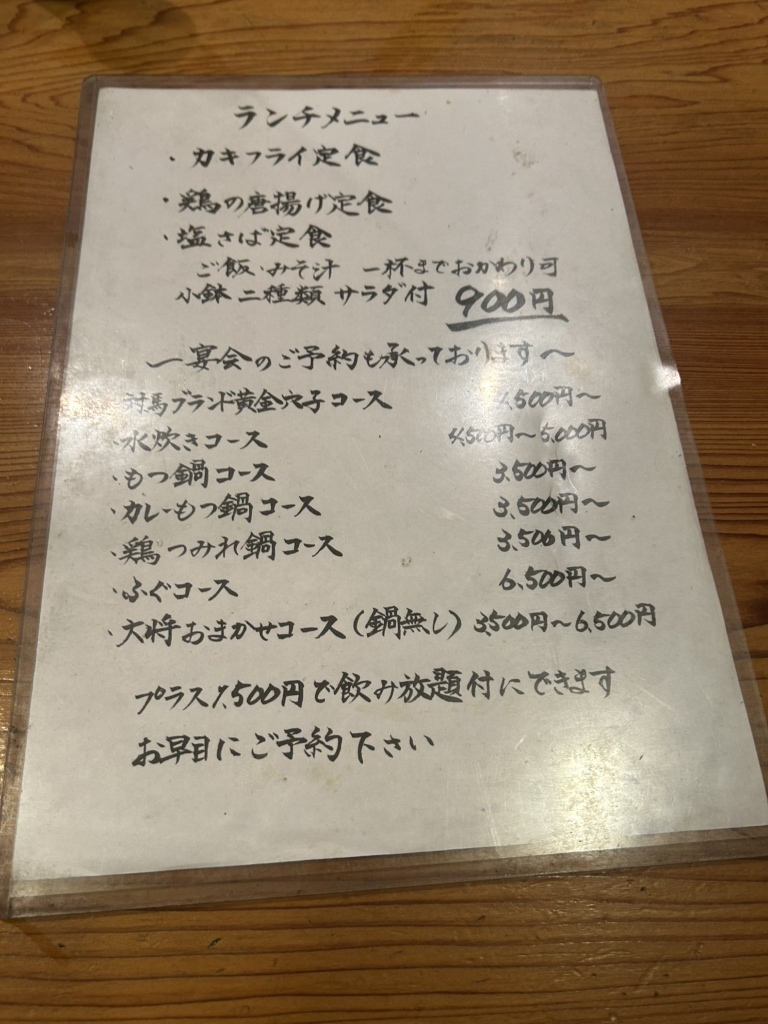 ランチメニュー
・カキフライ定食
・鶏の唐揚げ定食
・塩さば定食
ご飯・みそ汁 一杯までおかわり可
小鉢 二種類 サラダ付 900円
～宴会のご予約も承っております～
対馬ブランド黄金穴子コース 4,500円～
・水炊きコース 4,500円～5,000円
・もつ鍋コース 3,500円～
・カレーもつ鍋コース 3,500円～
・鶏つみれ鍋コース 3,500円～
・ふぐコース 6,500円～
・大将おまかせコース(鍋無し) 3,500円～6,500円
プラス1,500円で飲み放題付にできます
お早目にご予約下さい